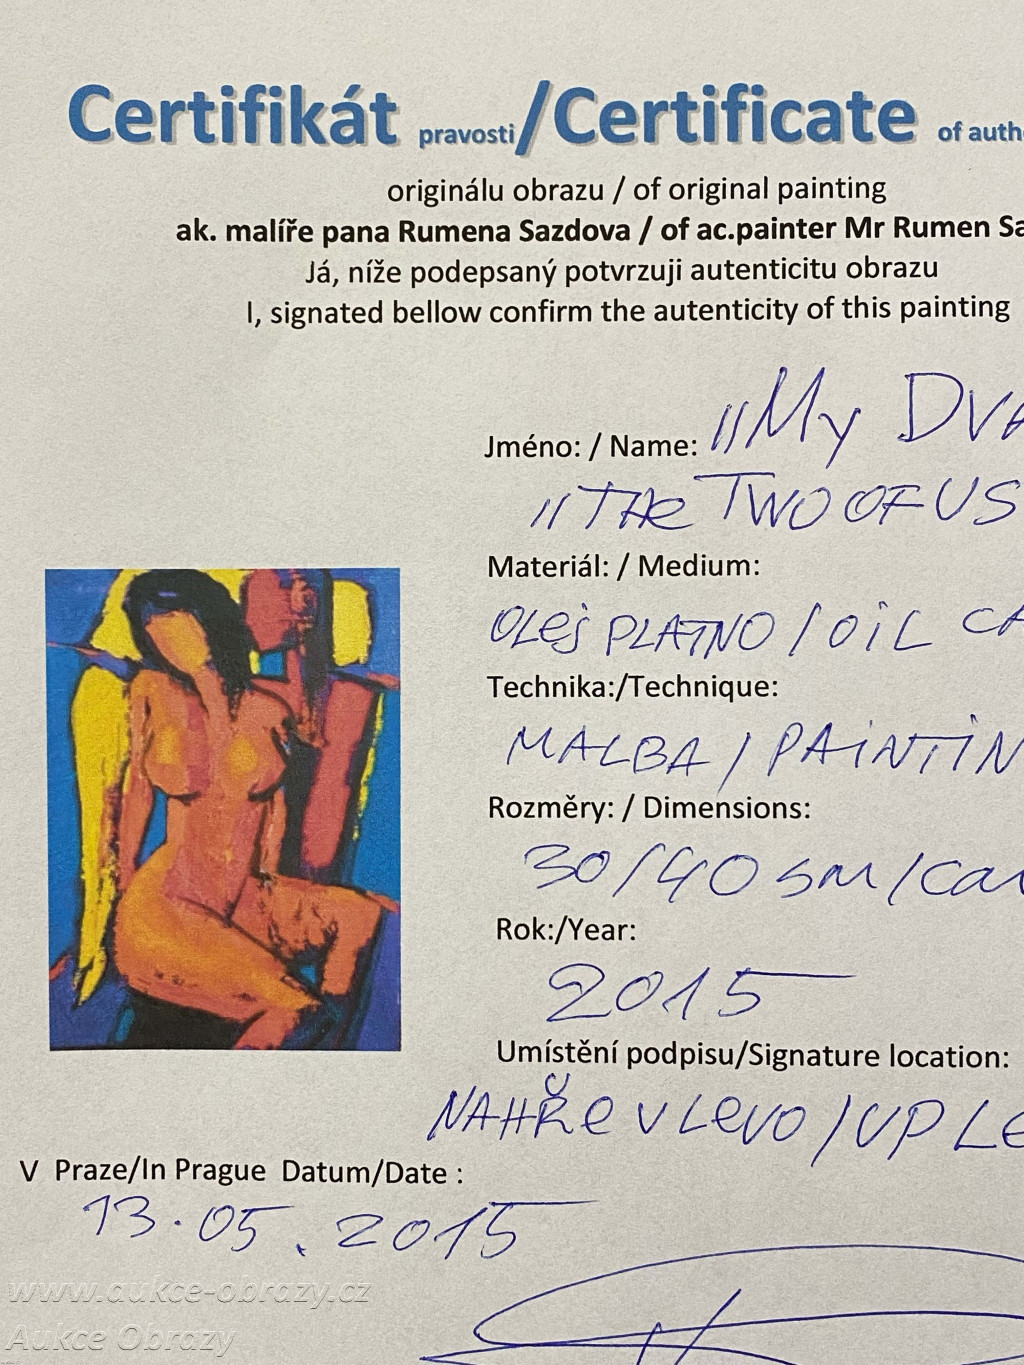 Certifikát pravosti/Certificate of auth
originálu obrazu / of original painting
ak. malíře pana Rumena Sazdova / of ac.painter Mr Rumen Sa
Já, níže podepsaný potvrzuji autenticitu obrazu
I, signated bellow confirm the autenticity of this painting
Jméno: / Name: "My DVA
"THE TWO OF US
Materiál: / Medium:
OLEJ PLATNO / OIL CA
Technika:/Technique:
MALBA / PAINTIN
Rozměry: / Dimensions:
30/40 SM/CAN
Rok:/Year:
2015
Umístění podpisu/Signature location:
NAHŘE V LEVO / UP LE
V Praze/In Prague Datum/Date :
13.05.2015
www.aukce-obrazy.cz
Aukce Obrazy